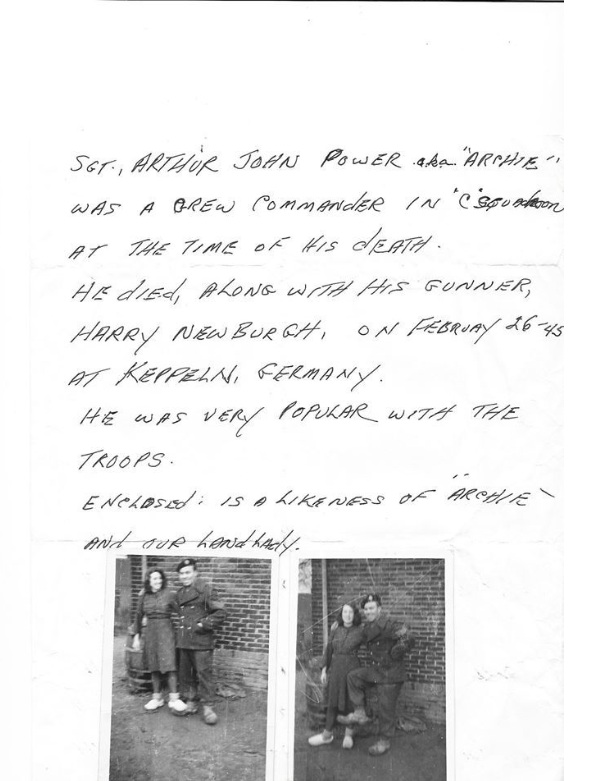 SGT., ARTHUR JOHN POWER aka "ARCHIE"
WAS A CREW COMMANDER IN "C" squadron
AT THE TIME OF HIS dEATH.
HE diEd, ALONG WITH HIS GUNNER,
HARRY NEWBURGH, ON FEBRUAY 26-45
AT KEPPELN, GERMANY.
HE WAS VERY POPULAR WITH THE
TROOPS.
ENCLOSEd: IS A LIKENESS OF "ARCHIE"
ANd OUR LANdLAdy.